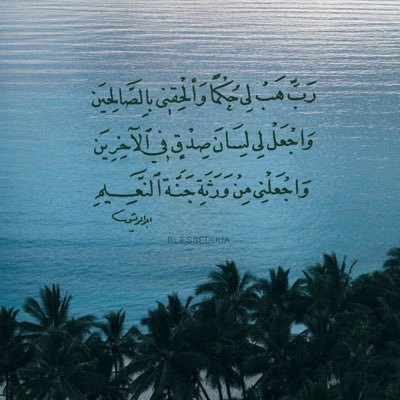 رَبِّ هَبْ لِي حُكْمًا وَأَلْحِقْنِي بِالصَّالِحِينَ
وَاجْعَلْ لِي لِسَانَ صِدْقٍ فِي ٱلْآخِرِينَ
وَاجْعَلْنِي مِنْ وَرَثَةِ جَنَّةِ ٱلنَّعِيمِ
BLESSEDUUA